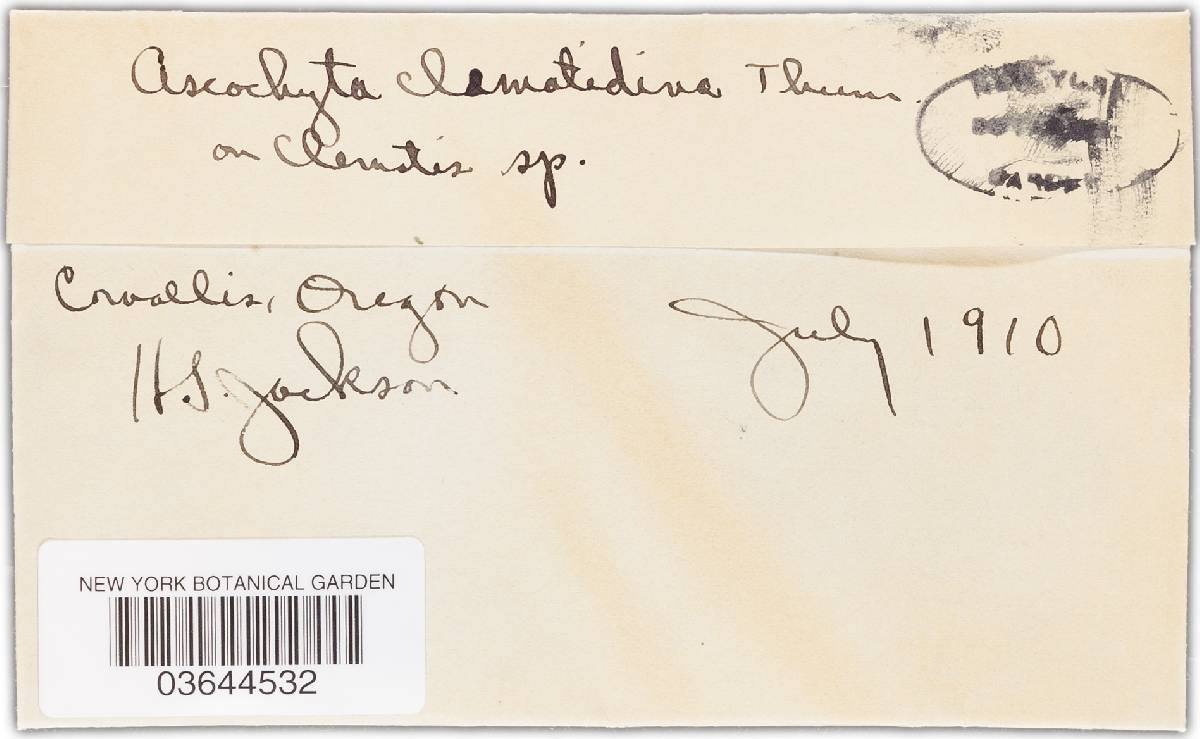 Ascochyta Clematidina Thum.
on Clematis sp.
NEW YORK
BOTANICAL
GARDEN
Corvallis, Oregon
July 1910
H.S. Jackson
NEW YORK BOTANICAL GARDEN
03644532